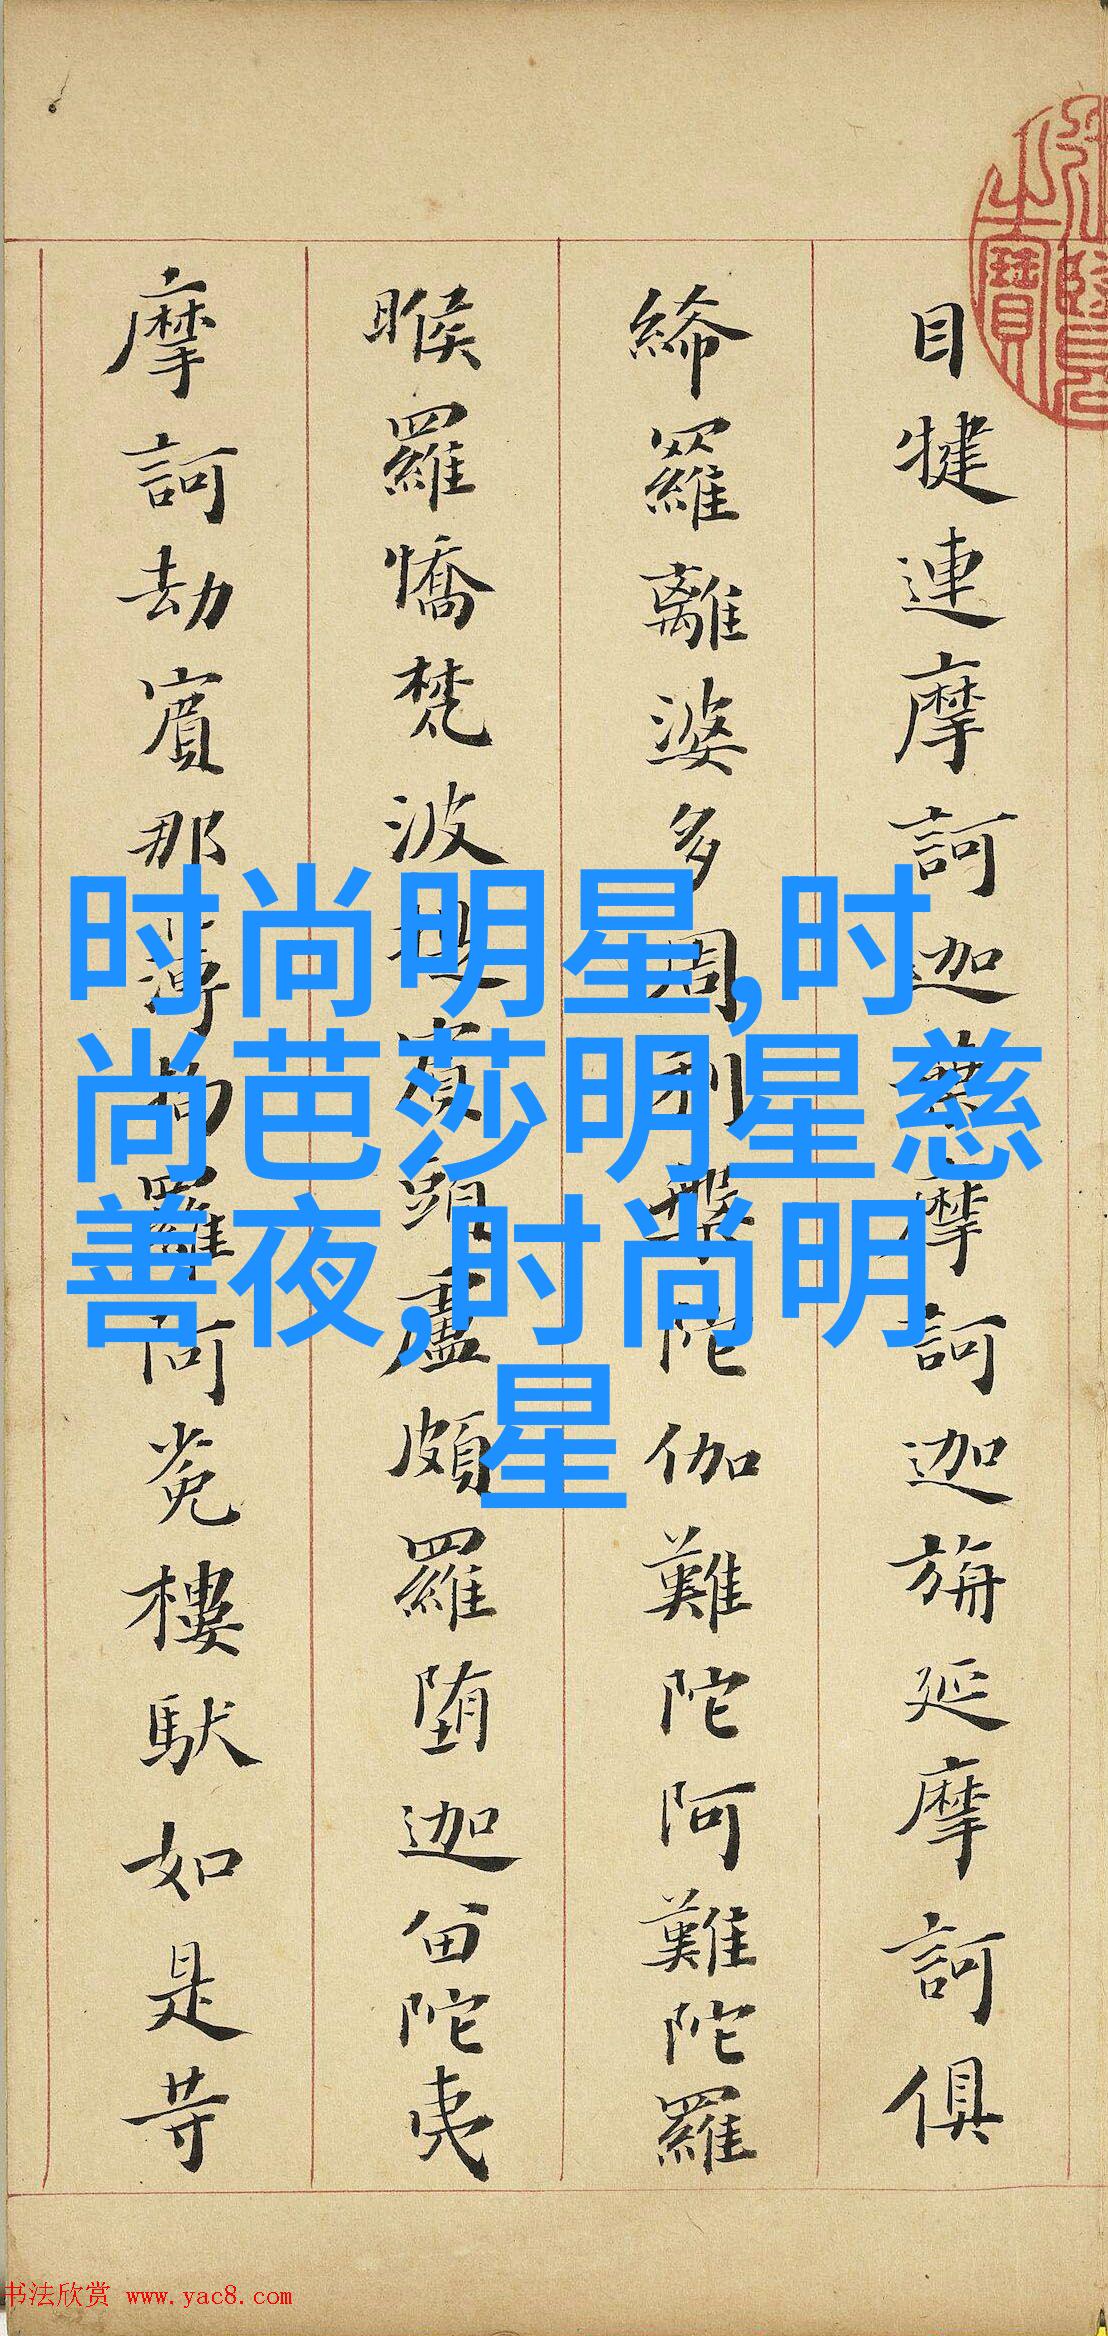 目犍連摩訶迦葉摩訶迦旃延摩訶俱
絺羅離婆多周利槃陀伽難陀阿難陀羅
睺羅憍梵波提賓頭盧頗羅墮迦留陀夷
摩訶劫賓那薄拘羅阿㝹樓馱如是等
御覽之寶
时尚明星,时
尚芭莎明星慈
善夜,时尚明
星
书法欣赏 www.yac8.com